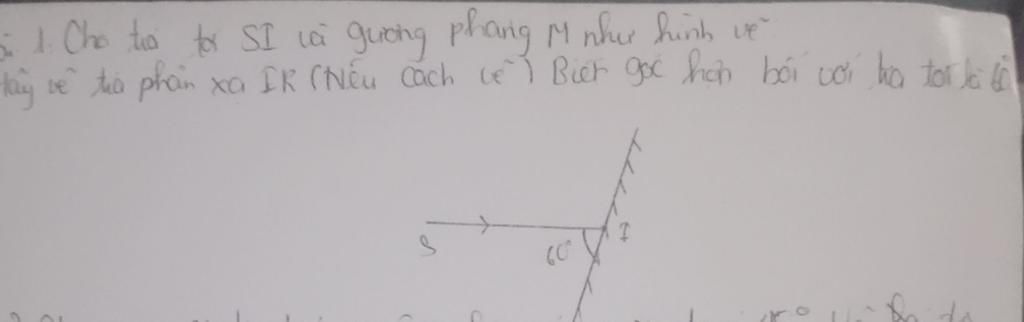 1. Cho tia tới SI và gương phẳng M như hình vẽ
Hãy vẽ tia phản xạ IR (Nêu cách vẽ) Biết góc hợp bởi với tia tới là
S
60°
I